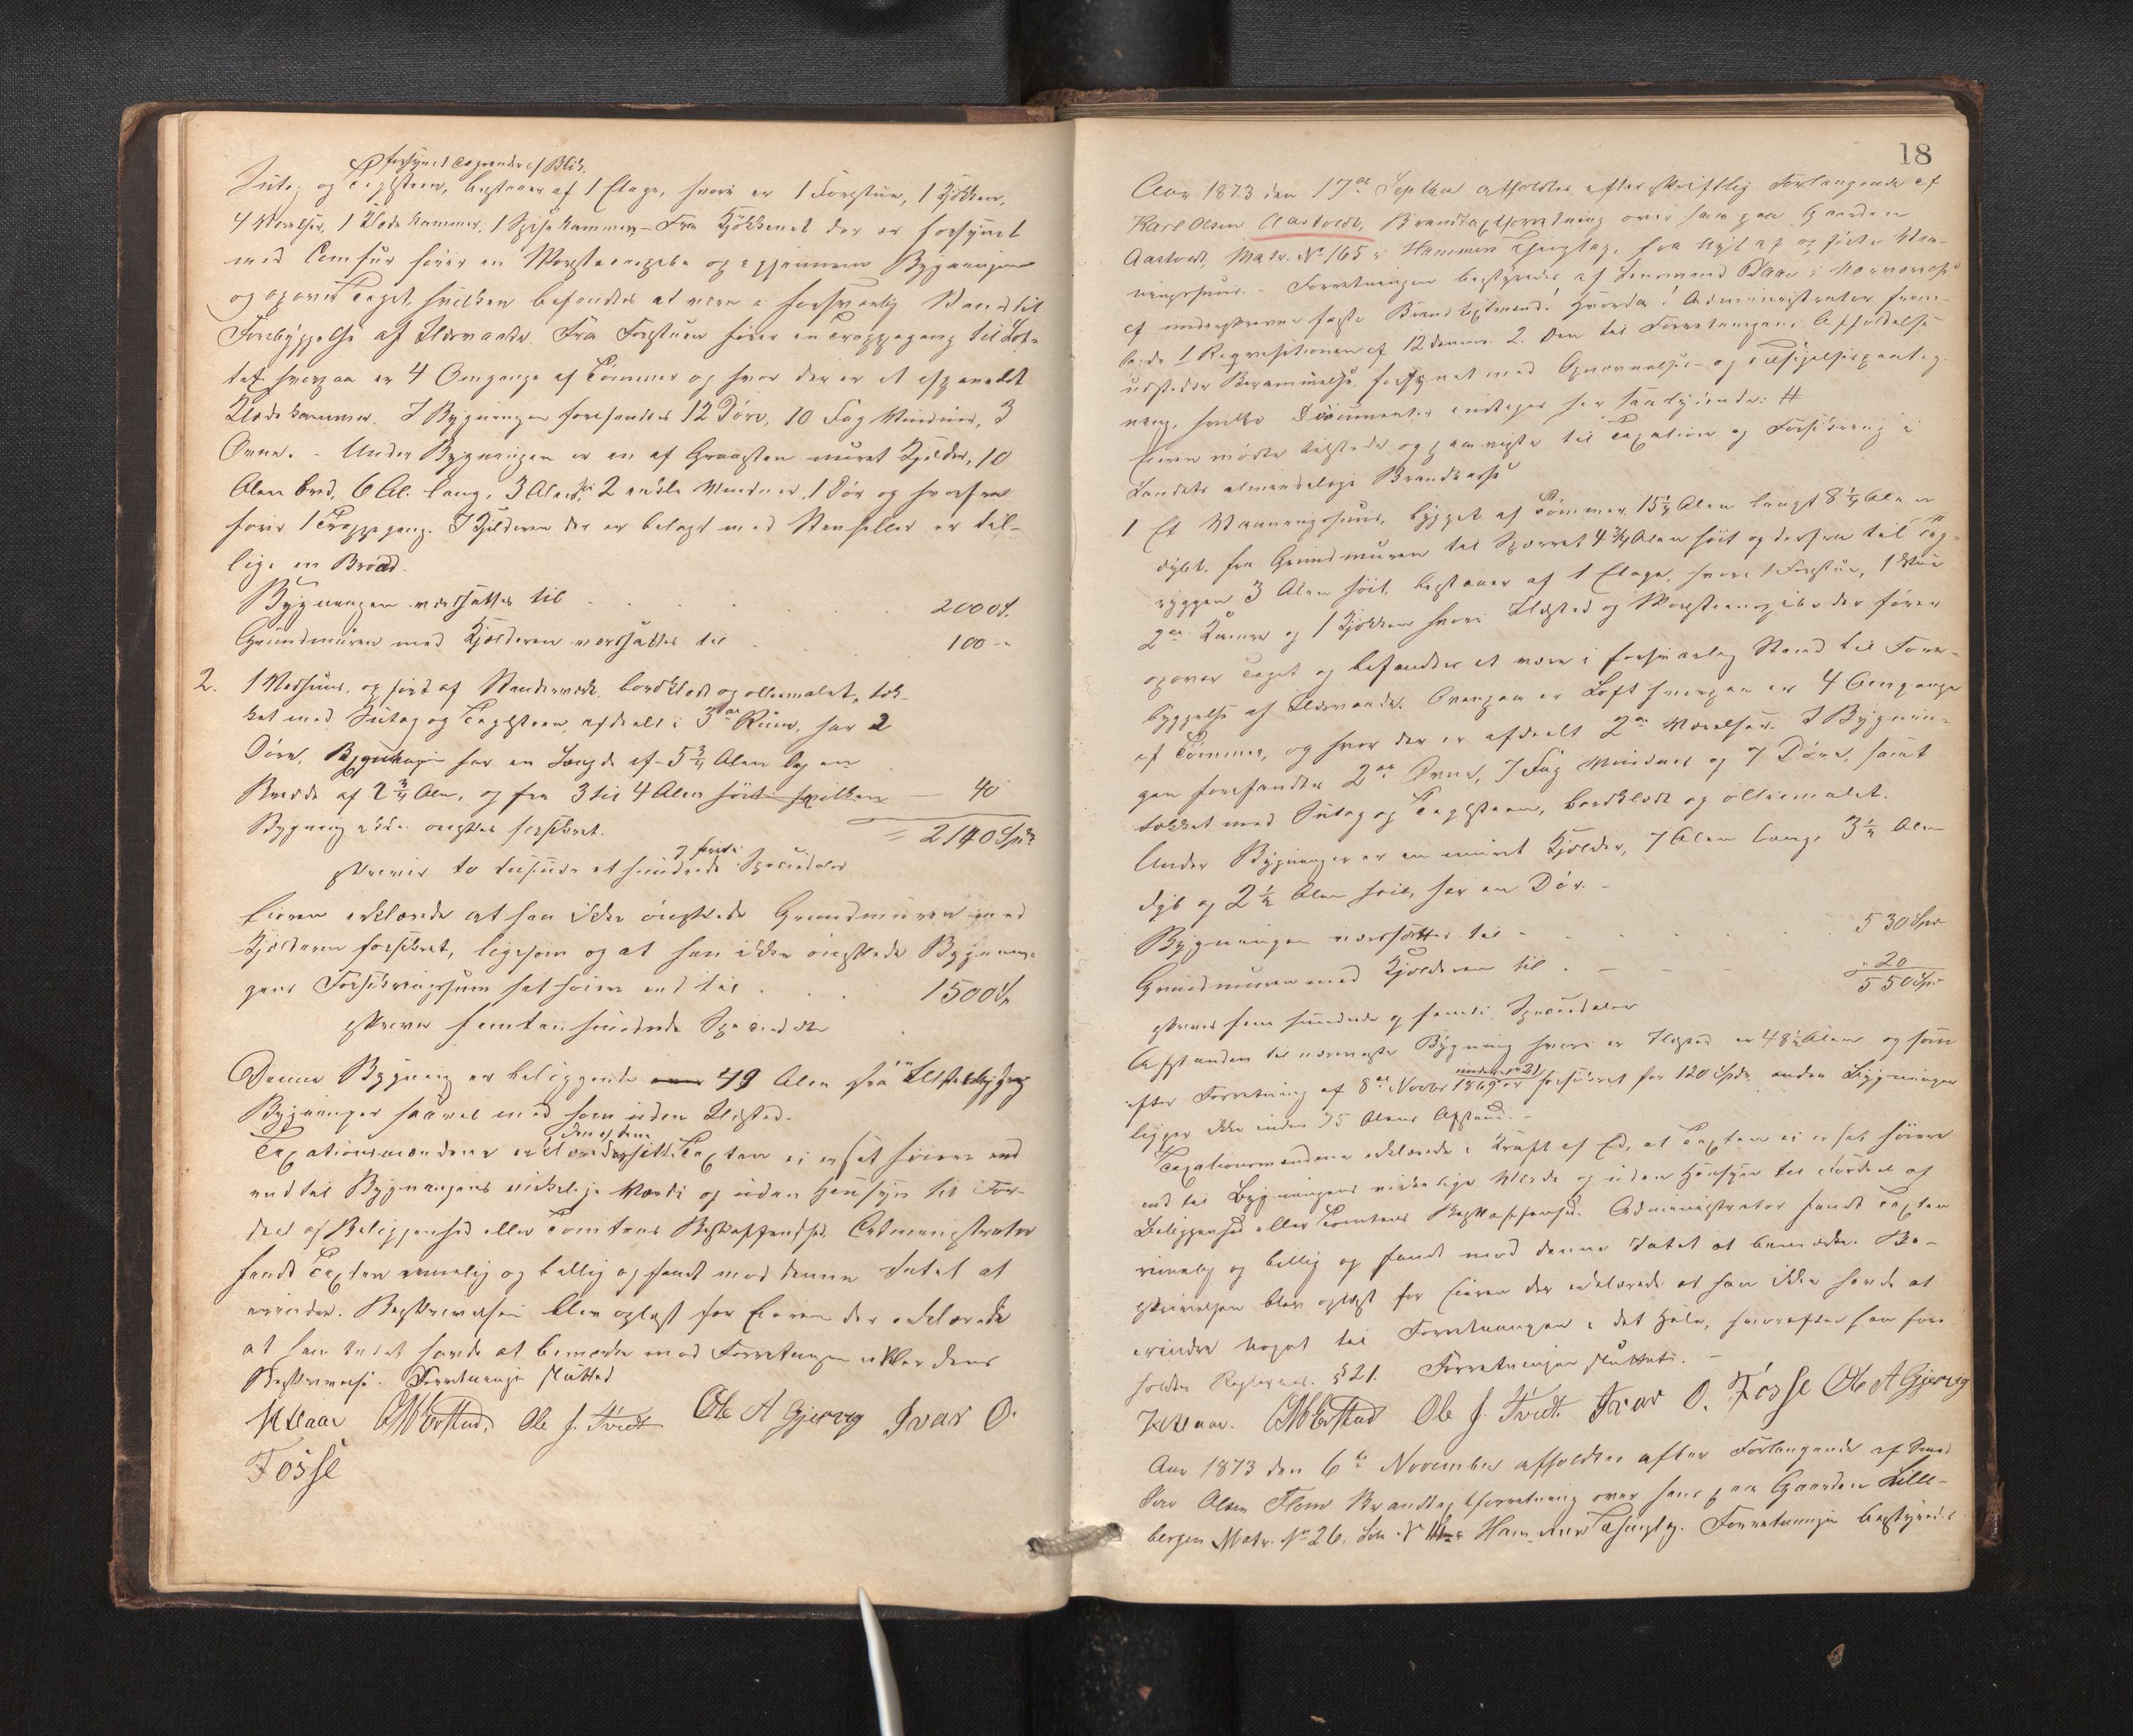 forsynet Tagrender af Blik.
Sutag og Taglsteen, bestaaer af 1 Etage, hvori er 1 Forstue, 1 Kjøkken,
4 Værelser, 1 Klædekammer, 1 Spisekammer – Fra Kjøkkenet der er forsynet
med Comfur fører en Skorsteenspibe op igjennem Bygningen
og op over Taget, hvilken befandtes at være i forsvarlig Stand til
Forebyggelse af Ildsvaade. Fra Forstuen fører en Trappegang til Lof-
tet hvorpaa er 4 Omgange af Tømmer og hvor der er et
Klædekammer. I Bygningen forefandtes 12 Døre, 10 Fag Vinduer, 3
Ovne. – Under Bygningen er en af Graasten muret Kjelder, 10
Alen bred, 6 Al. lang, 3 Alen 2 enkle Vinduer, 1 Dør og hvorfra
fører 1 Trappegang. I Kjelderen der er belagt med Stenheller er til-
lige en Brønd.
Bygningen værdsættes til . . . 2000 S.
Grundmuren med Kjælderen værdsættes til . . . 100 –
2. 1 Vedhuus, opført af Standerværk, bordklædt og olliemalet, tæk-
ket med Sutag og Taglsteen, afdeelt i 3de Rum, har 2
Døre, Bygningen har en Længde af 5 3/4 Alen og en
Bredde af 2 3/4 Alen, og fra 3 til 4 Alen høit hvilken — 40
Bygning ikke ønskes forsikret. = 2140 Spd
skriver to tusinde et hundrede og førti Speciedaler
Eieren erklærede at han ikke ønskede Grundmuren med
Kjælderen forsikret, ligesom og at han ikke ønskede Bygnin-
gens Forsikringssum sat høiere end til . . . 1500 S
skriver femten hundrede Speciedaler
Denne Bygning er beliggende 49 Alen fra
Bygninger saavel med som uden Ildsted.
Taxationsmændene erklærede at Taxten ei er sat høiere end
end til Bygningens virkelige Værdi og uden Hensyn til For-
deel af Beliggenhed eller Tomtens Beskaffenhed. Administrator
fandt Taxten rimelig og billig og fandt mod denne Intet at
erindre. Beskrivelsen blev oplæst for Eieren der erklærede
at han Intet havde at bemærke mod Forretningen eller dens
Beskrivelse. Forretningen sluttet
Ole J. Tvedt Ole A Gjervig Ivar O.
Fosse
18
Aar 1873 den 17de Septbr afholdtes efter skriftlig Forlangende af
Karl Olsen Aastvedt, Brandtaxtforretning over hans paa Gaarden
Aastvedt, Matr. No 165 i Hammer Thinglag, fra nyt af opførte Vaa-
ningshuus. – Forretningen bestyredes af Lensmand i
af undertegnede faste Brandtaxtmænd. Hvorda: Administrator frem-
lagde 1 Reqvisitionen af 12 dennes 2. Den til Forretningens Afholdelse
udstedte Berammelse, forsynet med Opnævnelses- og Tilsigelsespaateg-
ning, hvilke Documenter indtages her saalydende: #
Eieren mødte tilstede og paaviste til Taxation og Forsikring i
Landets almindelige Brandkasse
1 Et Vaaningshuus, bygget af Tømmer, 15 1/4 Alen langt 8 1/4 Alen
dybt, fra Grundmuren til Sperret 4 3/4 Alen høit og derfra til Tag-
ryggen 3 Alen høit, bestaaer af 1 Etage, hvori 1 Forstue, 1 Stue
2de Kamre og 1 Kjøkken hvori Ildsted og Skorsteenspibe der fører
op over Taget og befandtes at være i forsvarlig Stand til Fore-
byggelse af Ildsvaade. Ovenpaa er Loft hvorpaa er 4 Omgange
af Tømmer, og hvor der er afdeelt 2de Værelser. I Bygnin-
gen forefandtes 2de Ovne, 7 Fag Vinduer og 7 Døre, samt
tækket med Sutag og Taglsteen, bordklædt og olliemalet.
Under Bygningen er en muret Kjelder, 7 Alen lang, 3 1/2 Alen
dyb og 2 1/2 Alen høi, har en Dør. –
Bygningen værdsættes til . . . 530 Spd
Grundmuren med Kjælderen til . – – – " 20
550 Spd
skriver fem hundrede og femti Speciedaler
Afstanden til nærmeste Bygning hvori er Ildsted er 48 1/2 Alen og som
efter Forretning af 8de Novbr 1869 er under No 21 forsikret for 120 Spd. anden Bygninger
ligger ikke inden 75 Alens Afstand. –
Taxationsmændene erklærede i Kraft af Ed, at Taxten ei er sat høiere
end til Bygningens virkelige Værdi og uden Hensyn til Fordeel af
Beliggenhed eller Tomtens Beskaffenhed. Administrator fandt Taxten
rimelig og billig og fandt mod denne Intet at bemærke. Be-
skrivelsen blev oplæst for Eieren der erklærede at han ikke havde at
erindre noget til Forretningen i det Hele, hvorefter han fore
holdtes Reglernes § 21. Forretningen sluttet. –
Ole J. Tvedt. Ivar O. Fosse Ole A Gjervig
Aar 1873 den 6te November afholdtes efter Forlangende af
Olsen Flem Brandtaxtforretning over hans paa Gaarden Lille-
bergen Matr. No 26, Løb. No i Hammer Thinglag. Forretningen bestyredes